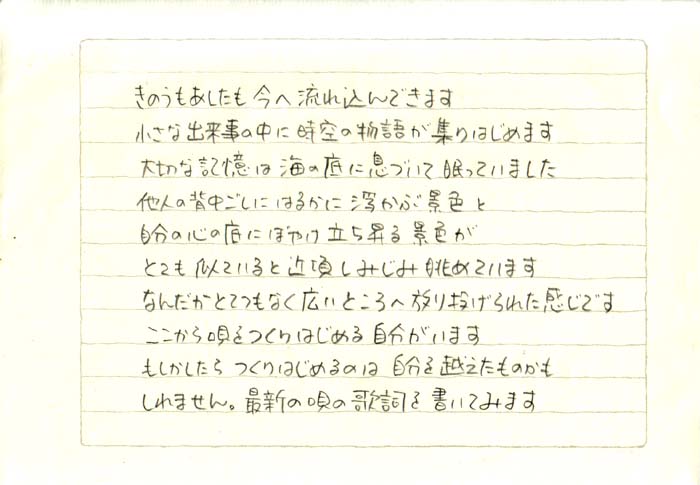 きのうもあしたも今へ流れ込んできます
小さな出来事の中に時空の物語が集りはじめます
大切な記憶は海の底に息づいて眠っていました
他人の背中ごしにはるかに浮かぶ景色と
自分の心の底にぼやけ立ち昇る景色が
とても似ていると近頃しみじみ眺めています
なんだかとてつもなく広いところへ放り投げられた感じです
ここから唄をつくりはじめる自分がいます
もしかしたらつくりはじめるのは自分を越えたものかも
しれません。最新の唄の歌詞を書いてみます